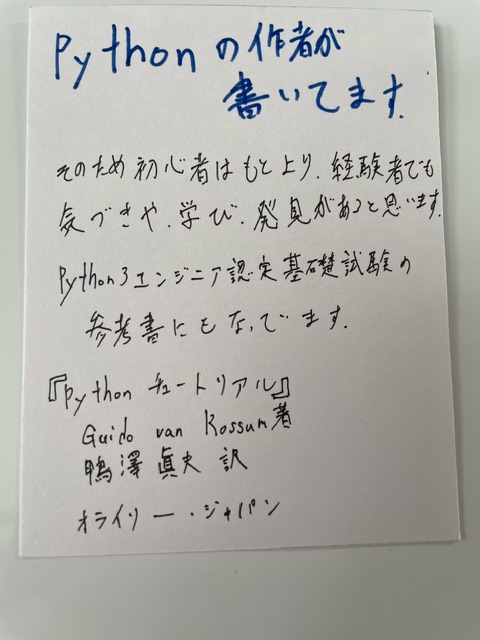 Pythonの作者が
書いてます.
そのため初心者はもとより.経験者でも
気づきや.学び.発見があると思います.
Python3エンジニア認定基礎試験の
参考書にもなってます.
『Python チュートリアル』
Guido van Rossum著
鴨澤 眞夫 訳
オライリー・ジャパン